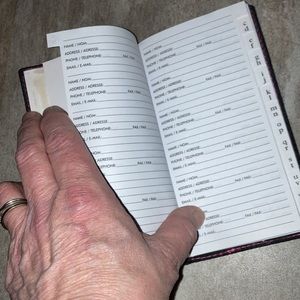 NAME / NOM:
ADDRESS / ADRESSE:
PHONE / TELEPHONE FAX / FAX:
EMAIL / E-MAIL:
NAME / NOM:
ADDRESS / ADRESSE:
PHONE / TELEPHONE FAX / FAX:
EMAIL / E-MAIL:
NAME / NOM:
ADDRESS / ADRESSE:
/ TELEPHONE FAX / FAX:
/ E-MAIL:
/ NOM:
/ ADRESSE:
/ TELEPHONE FAX / FAX:
/ E-MAIL:
NAME / NOM:
ADDRESS / ADRESSE:
PHONE / TELEPHONE FAX / FAX:
EMAIL / E-MAIL:
NAME / NOM:
ADDRESS / ADRESSE:
PHONE / TELEPHONE FAX / FAX:
EMAIL / E-MAIL:
NAME / NOM:
ADDRESS / ADRESSE:
PHONE / TELEPHONE FAX / FAX:
EMAIL / E-MAIL:
NAME / NOM:
ADDRESS / ADRESSE:
PHONE / TELEPHONE FAX / FAX:
/ E-MAIL:
cd
ef
gh
ij
kl
mn
op
qr
s
t
u